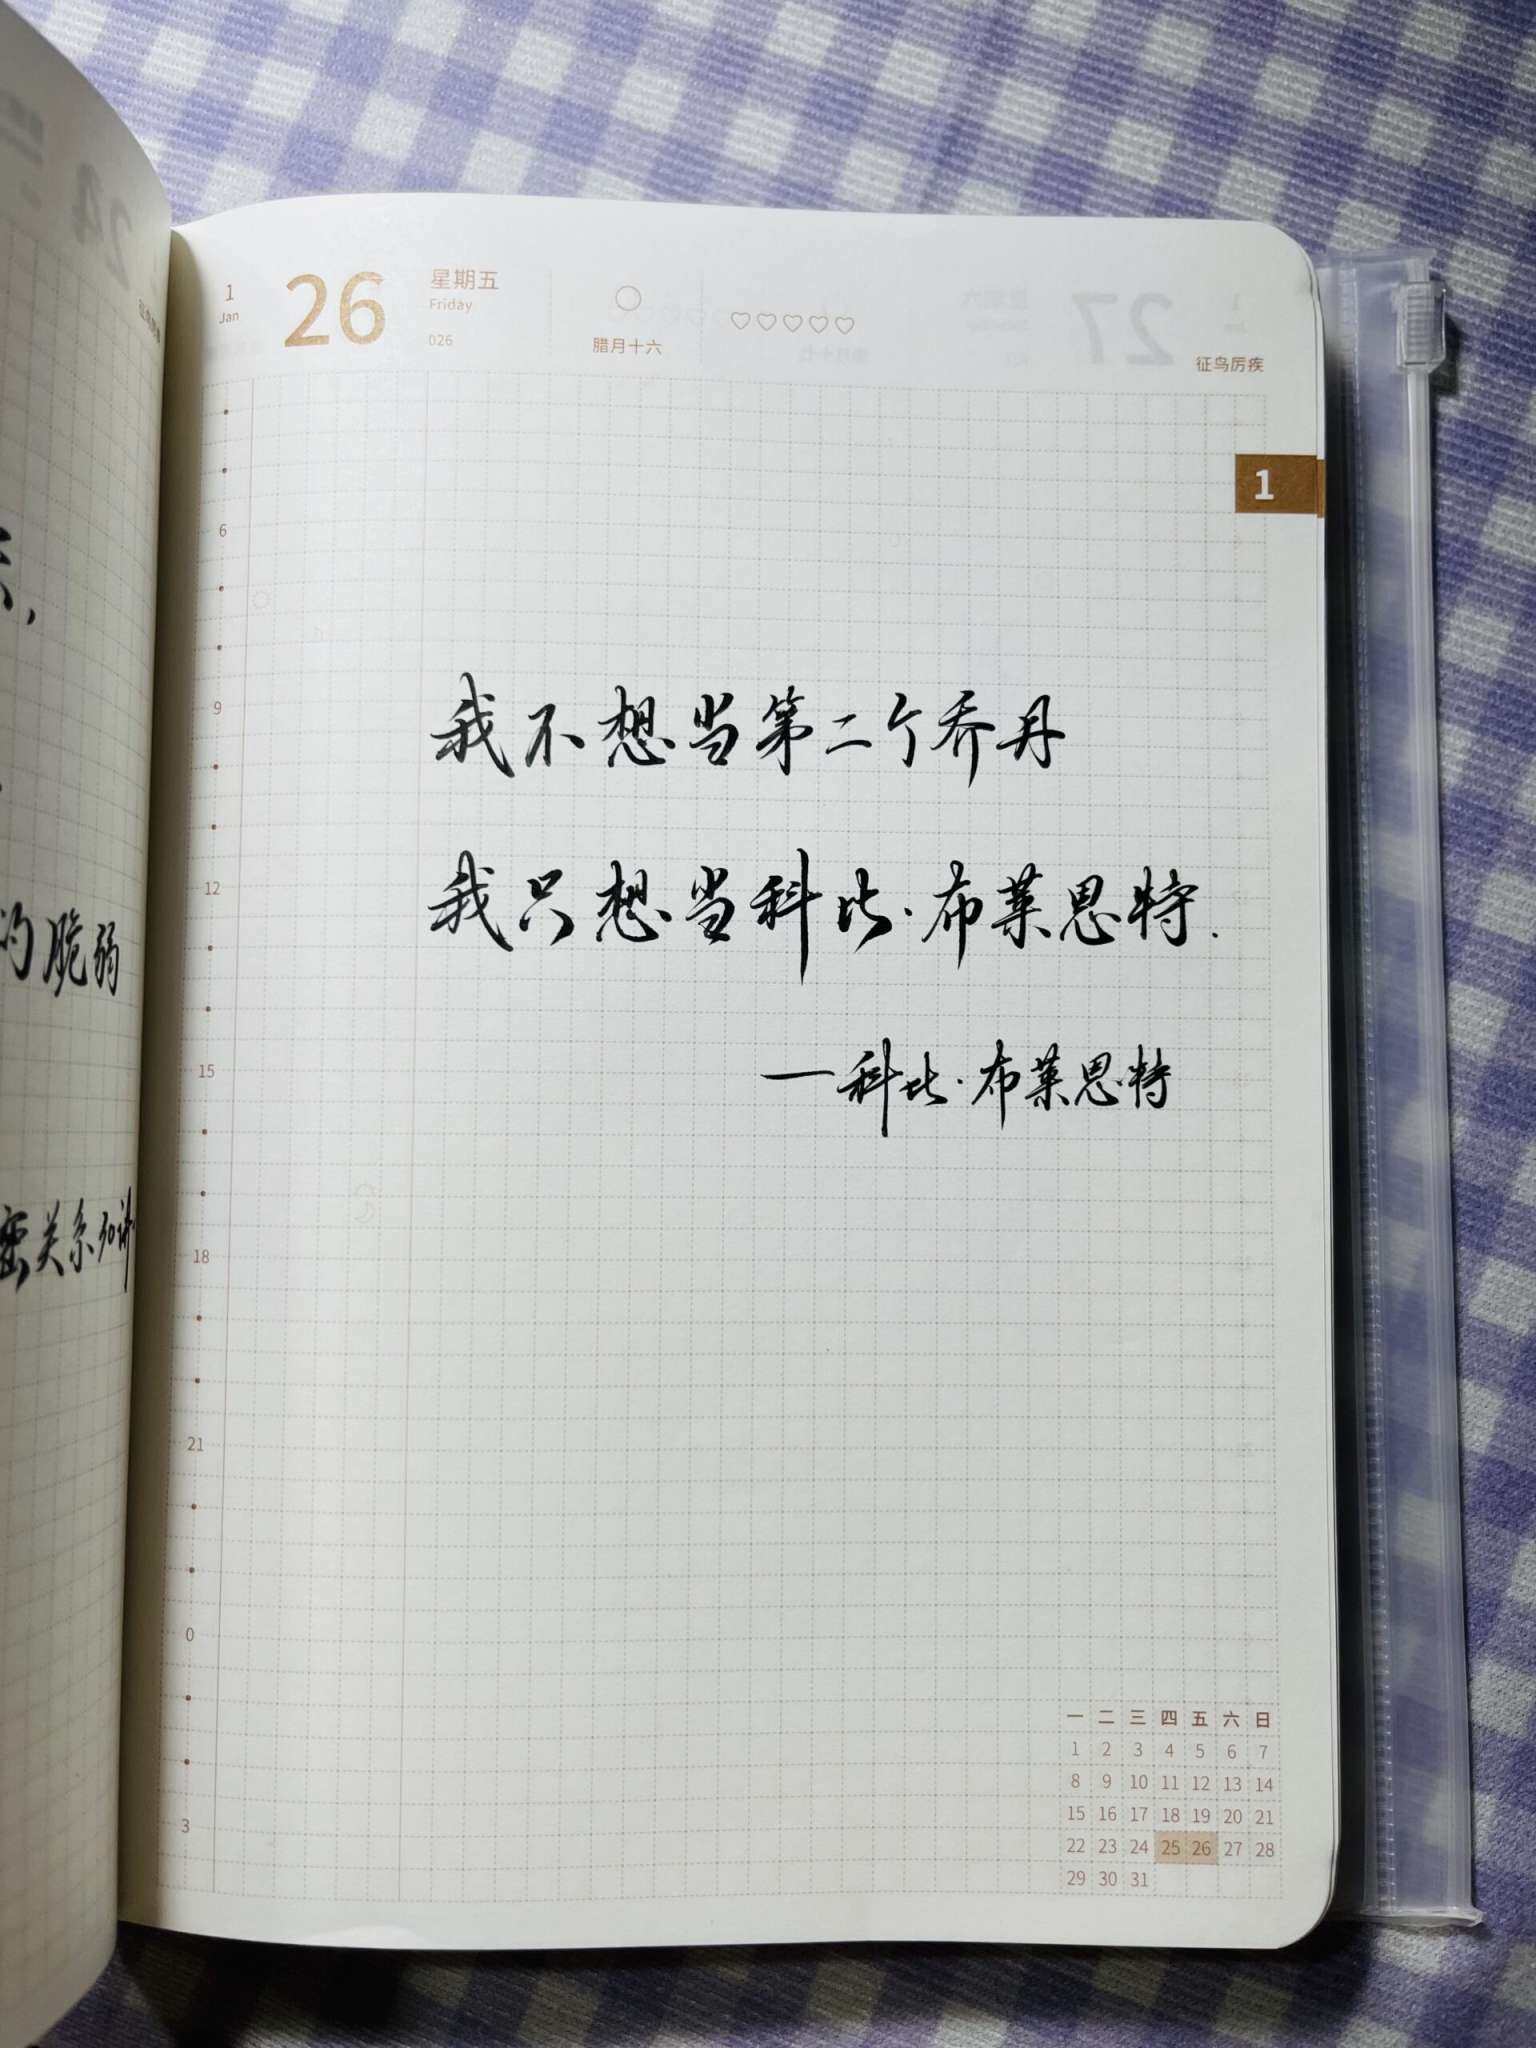 1
Jan
26
星期五
Friday
026
腊月十六
征鸟厉疾
1
6
9
12
15
18
21
0
3
我不想当第二个乔丹
我只想当科比·布莱恩特.
—科比·布莱恩特
的脆弱
密关系知讲
一 二 三 四 五 六 日
1 2 3 4 5 6 7
8 9 10 11 12 13 14
15 16 17 18 19 20 21
22 23 24 25 26 27 28
29 30 31
24
27